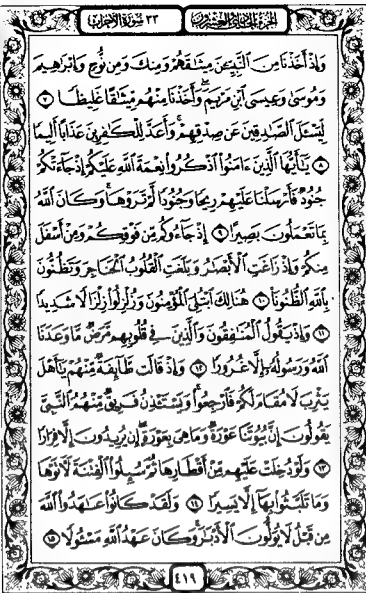 الجزء الحادي والعشرون ٣٣ سورة الأحزاب
وَإِذْ أَخَذْنَا مِنَ ٱلنَّبِيِّـۧنَ مِيثَٰقَهُمْ وَمِنكَ وَمِن نُّوحٍ وَإِبْرَٰهِيمَ
وَمُوسَىٰ وَعِيسَى ٱبْنِ مَرْيَمَ ۖ وَأَخَذْنَا مِنْهُم مِّيثَٰقًا غَلِيظًا ٧
لِّيَسْـَٔلَ ٱلصَّٰدِقِينَ عَن صِدْقِهِمْ ۚ وَأَعَدَّ لِلْكَٰفِرِينَ عَذَابًا أَلِيمًا
٨ يَٰٓأَيُّهَا ٱلَّذِينَ ءَامَنُوا۟ ٱذْكُرُوا۟ نِعْمَةَ ٱللَّهِ عَلَيْكُمْ إِذْ جَآءَتْكُمْ
جُنُودٌ فَأَرْسَلْنَا عَلَيْهِمْ رِيحًا وَجُنُودًا لَّمْ تَرَوْهَا ۚ وَكَانَ ٱللَّهُ
بِمَا تَعْمَلُونَ بَصِيرًا ٩ إِذْ جَآءُوكُم مِّن فَوْقِكُمْ وَمِنْ أَسْفَلَ
مِنكُمْ وَإِذْ زَاغَتِ ٱلْأَبْصَٰرُ وَبَلَغَتِ ٱلْقُلُوبُ ٱلْحَنَاجِرَ وَتَظُنُّونَ
بِٱللَّهِ ٱلظُّنُونَا۠ ١٠ هُنَالِكَ ٱبْتُلِىَ ٱلْمُؤْمِنُونَ وَزُلْزِلُوا۟ زِلْزَالًا شَدِيدًا
١١ وَإِذْ يَقُولُ ٱلْمُنَٰفِقُونَ وَٱلَّذِينَ فِى قُلُوبِهِم مَّرَضٌ مَّا وَعَدَنَا
ٱللَّهُ وَرَسُولُهُۥٓ إِلَّا غُرُورًا ١٢ وَإِذْ قَالَت طَّآئِفَةٌ مِّنْهُمْ يَٰٓأَهْلَ
يَثْرِبَ لَا مُقَامَ لَكُمْ فَٱرْجِعُوا۟ ۚ وَيَسْتَـْٔذِنُ فَرِيقٌ مِّنْهُمُ ٱلنَّبِىَّ
يَقُولُونَ إِنَّ بُيُوتَنَا عَوْرَةٌ وَمَا هِىَ بِعَوْرَةٍ ۖ إِن يُرِيدُونَ إِلَّا فِرَارًا
١٣ وَلَوْ دُخِلَتْ عَلَيْهِم مِّنْ أَقْطَارِهَا ثُمَّ سُئِلُوا۟ ٱلْفِتْنَةَ لَـَٔاتَوْهَا
وَمَا تَلَبَّثُوا۟ بِهَآ إِلَّا يَسِيرًا ١٤ وَلَقَدْ كَانُوا۟ عَٰهَدُوا۟ ٱللَّهَ
مِن قَبْلُ لَا يُوَلُّونَ ٱلْأَدْبَٰرَ ۚ وَكَانَ عَهْدُ ٱللَّهِ مَسْـُٔولًا ١٥
٤١٩